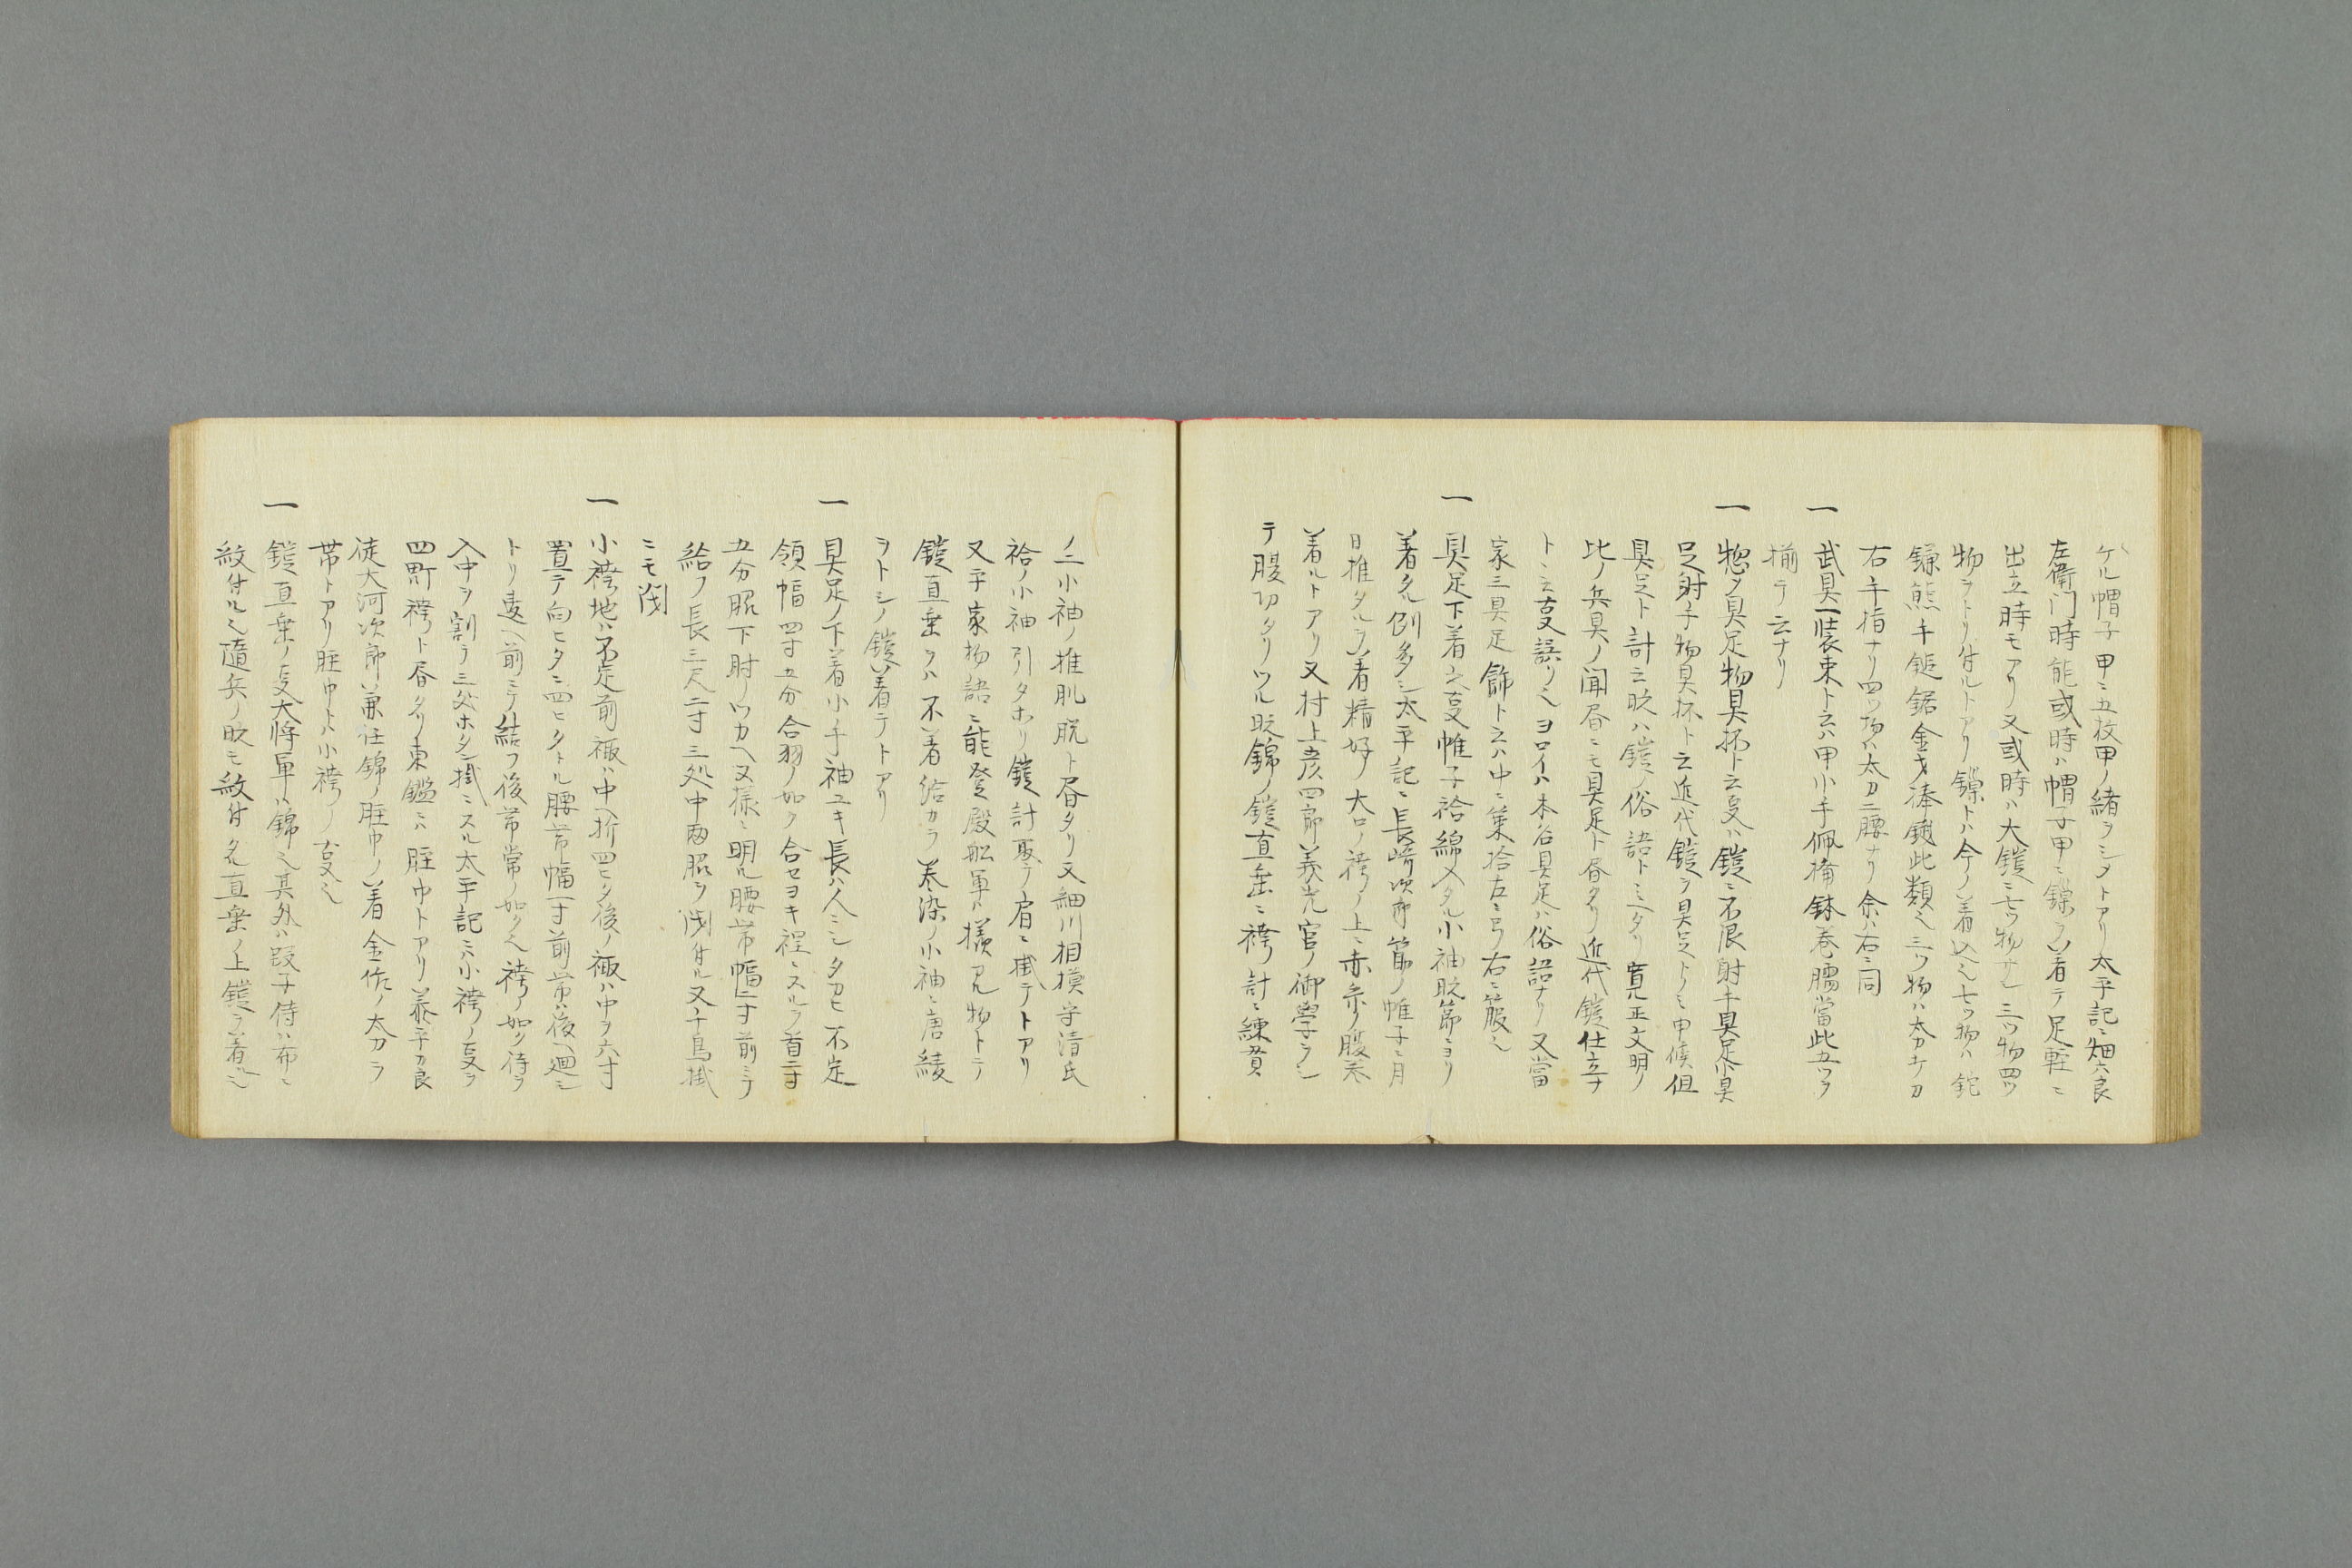 ケル帽子甲ニ五枚甲ノ緒ヲシメトアリ太平記ニ畑六良
左衛門時能或時ハ帽子甲ニ鎖ヲ著テ足軽ニ
出立時モアリ又或時ハ大鎧ニ七ツ物ナル三ツ物四ツ
物ヲトリ付ルトアリ鎖トハ今ノ着込也七ツ物ハ鉈
鎌熊手鉞鋸金才棒此類也三ツ物ハ太刀ナタ刀
右手指ナリ四ツ物ハ太刀二腰ナリ余ハ右ニ同
一 武具一装束ト云ハ甲小手佩楯鉢巻臑當此五ツヲ
揃テ云ナリ
一 惣〆具足物具抔ト云支ハ鎧ニ不限射手具足小具
足射手物具抔ト云近代鎧ヲ具足トノミ申候但
具足ト計云时ハ鎧ノ俗語トミヘタリ寛正文明ノ
比ノ兵具ノ聞書ニモ具足ト書タリ近代鎧仕立ナ
トヽ云支誤リ也ヨロイハ本名具足ハ俗語ナリ又當
家三具足餝ト云ハ中ニ葉拾左ニ弓右ニ箙也
一 具足下着之支帷子袷綿入タル小袖时節ニヨリ
著タル例多シ太平記ニ長崎次郎節ノ帷子ニ月
日推タルヲ著精好ノ大口ノ袴ノ上ニ赤糸ノ腹巻
着ルトアリ又村上彦四郎義光宮ノ御學ヲシ
テ腹切タリツル时錦ノ鎧直垂ニ袴計ニ練貫
ノ二小袖ノ推肌脱ト書タリ又細川相摸守清氏
袷ノ小袖引タホリ鎧計取テ肩ニ掛テトアリ
又平家物語ニ能登殿船軍ハ様アル物トテ
鎧直垂ヲハ不著給カラ巻染ノ小袖ニ唐綾
ヲトシノ鎧著テトアリ
一 具足ノ下着小手袖ユキ長ハ人ニシタカヒ不定
領幅四寸五分合羽ノ如ク合セヨキ程ニスル首二寸
五分脇下肘ノツカヘヌ様ニ明ル腰帯幅二寸前ニテ
給フ長三尺二寸三処中両脇ヲ閉付ル又千鳥掛
ニモ閉
一 小袴地ハ不定前襠ハ中ヘ折四ヒタ後ノ襠ハ中ヲ六寸
置テ向ヒタニ四ヒタトル腰帯幅一寸前帯ハ後ヘ廻シ
トリ違ヘ前ニテ結フ後帯常ノ如ク也袴ノ如ク待ヲ
入中ヲ割テ三処ホタン掛ニスル太平記ニハ小袴ノ支ヲ
四町袴ト書タリ東鑑ニハ脛巾トアリ義平カ良
徒大河次郎兼任錦ノ脛巾ノ着金作ノ太刀ヲ
帯トアリ脛巾トハ小袴ノ支也
一 鎧直垂ノ支大将軍ハ錦也其外ハ段子侍ハ布ニ
紋付ル也隨兵ノ时モ紋付タル直垂ノ上鎧ヲ著ル也